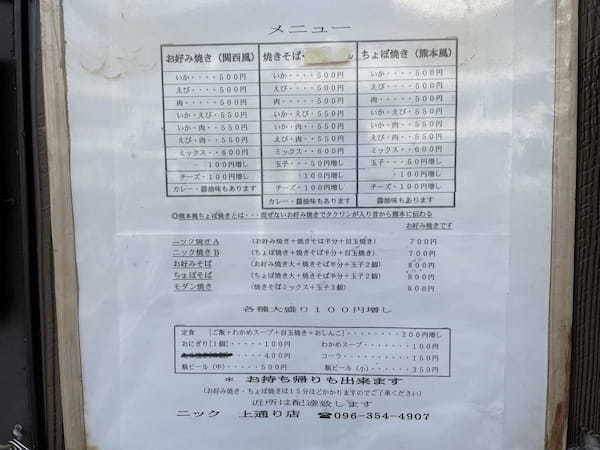 メニュー
お好み焼き（関西風） 焼きそば・ ちょぼ焼き（熊本風）
いか・・・・500円 いか・・・・500円 いか・・・・500円
えび・・・・500円 えび・・・・500円 えび・・・・500円
肉・・・・・500円 肉・・・・・500円 肉・・・・・500円
いか・えび・・550円 いか・えび・・550円 いか・えび・・550円
いか・肉・・・550円 いか・肉・・・550円 いか・肉・・・550円
えび・肉・・・550円 えび・肉・・・550円 えび・肉・・・550円
ミックス・・600円 ミックス・・600円 ミックス・・600円
・100円増し 玉子・・・50円増し 玉子・・・50円増し
チーズ・100円増し ・100円増し ・100円増し
カレー・醤油味もあります チーズ・100円増し チーズ・100円増し
カレー・醤油味もあります カレー・醤油味もあります
◎熊本風ちょぼ焼きとは・・・混ぜないお好み焼きでタクワンが入り昔から熊本に伝わる
お好み焼きです
ニック焼きA （お好み焼き＋焼きそば半分＋目玉焼き） 700円
ニック焼きB （ちょぼ焼き＋焼きそば半分＋目玉焼き） 700円
お好みそば （お好み焼き大＋焼きそば半分＋玉子2個） 800円
ちょぼそば （ちょぼ焼き大＋焼きそば半分＋玉子2個） 800円
モダン焼き （焼きそばミックス＋玉子3個） 800円
各種大盛り100円増し
定食 [ご飯＋わかめスープ＋目玉焼き＋おしんこ]・・・・・・・・200円増し
おにぎり[1個]・・・・・100円 わかめスープ・・・・・・100円
・・・・400円 コーラ・・・・・・・・・150円
瓶ビール（中）・・・・・500円 瓶ビール（小）・・・・・350円
* お持ち帰りも出来ます
（お好み焼き・ちょぼ焼きは15分ほどかかりますのでご了承ください）
近所は配達致します
ニック 上通り店 ☎096-354-4907